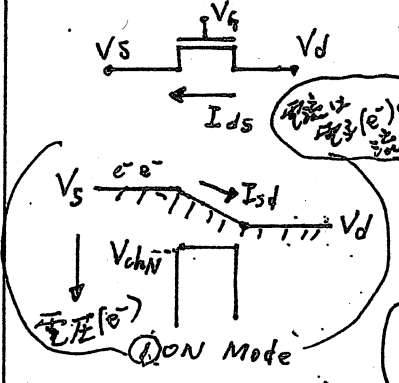 VG
Vs Vd
Ids
電流は
電子(e⁻)
流
e⁻ e⁻
Isd
Vs
Vd
VchN
電圧(e⁻)
① ON Mode